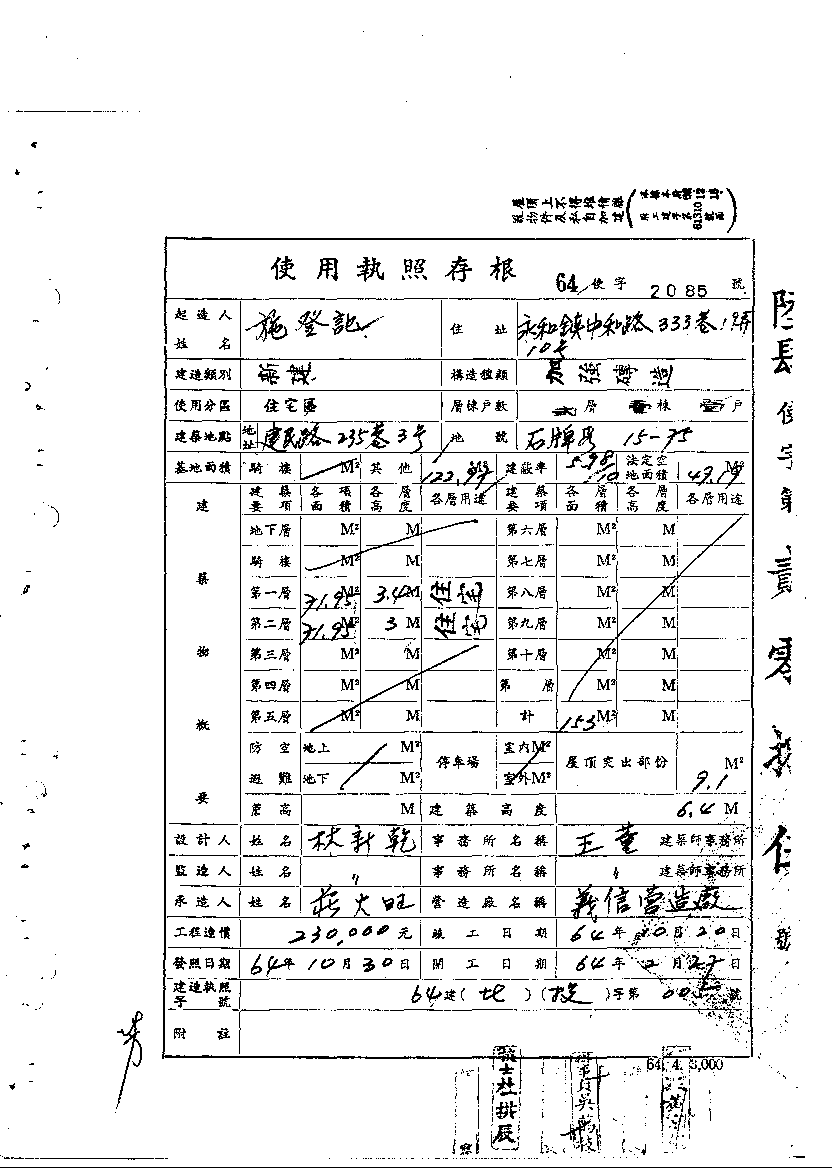 屋頂上不得堆積雜
物件及私自加建
使用執照存根 64 使字 2085 號
起造人姓名 施登記 住址 永和鎮中和路333巷1弄10号
建造類別 新建 構造種類 加強磚造
使用分區 住宅區 層棟戶數 層 棟 戶
建築地點 地址 建民路235巷3号 地號 石牌段 15-75
基地面積 騎樓 M² 其他 122.97 建蔽率 5.98/10 法定空地面積 49.19 M²
建築要項 各項面積 各層高度 各層用途 建築要項 各層面積 各層高度 各層用途
建築物概要
地下層 M² M 第六層 M² M
騎樓 M² M 第七層 M² M
第一層 71.95 M² 3.4 M 住宅 第八層 M² M
第二層 71.95 M² 3 M 住宅 第九層 M² M
第三層 M² M 第十層 M² M
第四層 M² M 第 層 M² M
第五層 M² M 計 153 M²
防空避難 地上 M² 停車場 室內M² 屋頂突出部份 M²
地下 M² 室外M² 9.1
簷高 M 建築高度 6.4 M
設計人 姓名 林新乾 事務所名稱 王董 建築師事務所
監造人 姓名 〃 事務所名稱 〃 建築師事務所
承造人 姓名 莊火旺 營造廠名稱 義信營造廠
工程造價 230,000元 竣工日期 64年10月20日
發照日期 64年10月30日 開工日期 64年2月27日
建造執照字號 64建(北)(投)字第 號
附註
64. 4. 3,000
使字第貳零
號